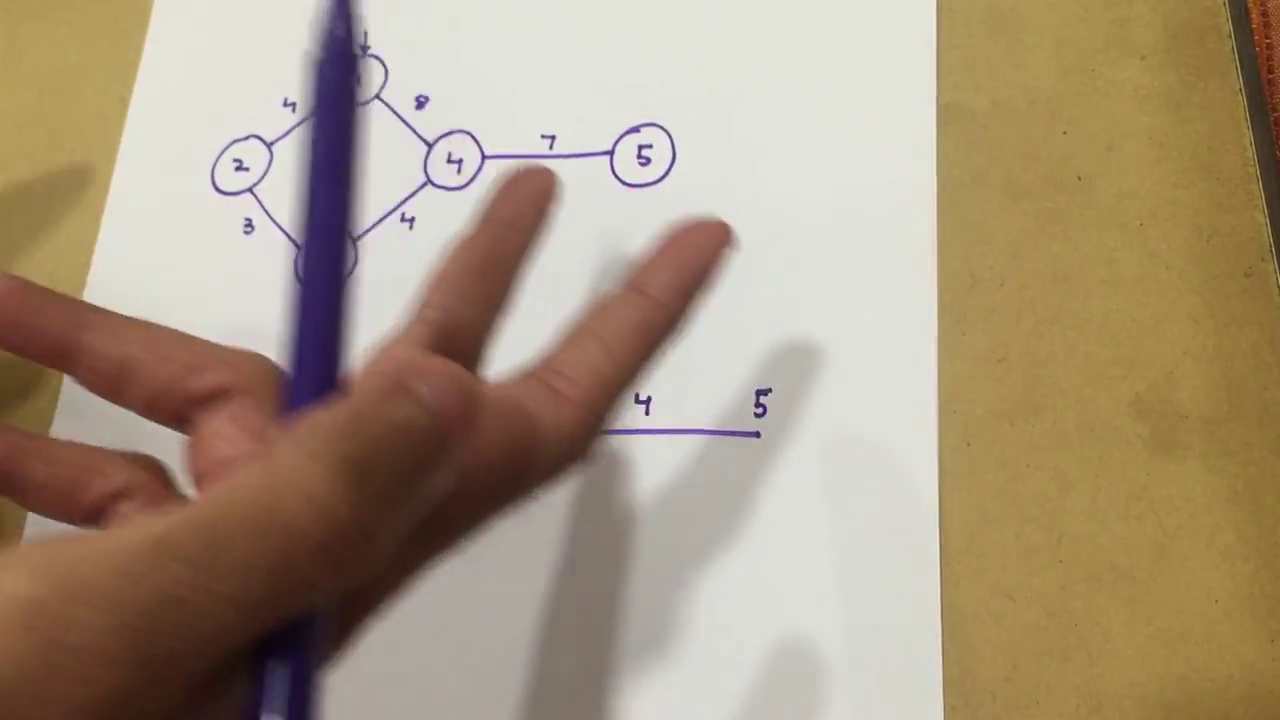 4 8
2 4 7 5
3 4
4 5